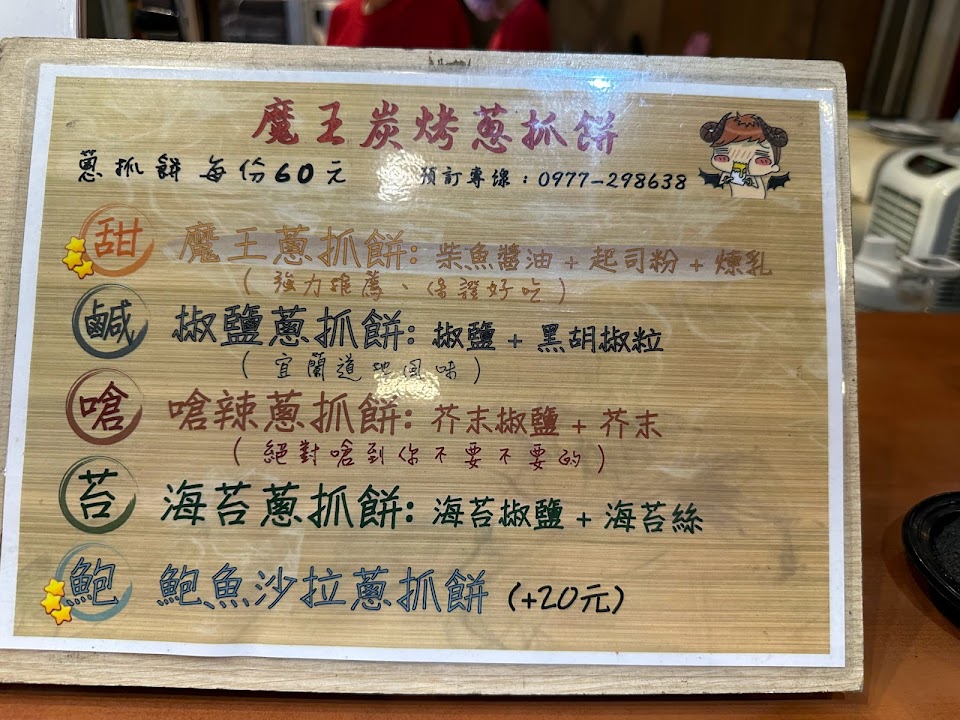 魔王炭烤蔥抓餅
蔥抓餅 每份60元 預訂專線：0977-298638
甜 魔王蔥抓餅: 柴魚醬油 + 起司粉 + 煉乳
(強力推薦、保證好吃)
鹹 椒鹽蔥抓餅: 椒鹽 + 黑胡椒粒
(宜蘭道地風味)
嗆 嗆辣蔥抓餅: 芥末椒鹽 + 芥末
(絕對嗆到你不要不要的)
苔 海苔蔥抓餅: 海苔椒鹽 + 海苔絲
鮑 鮑魚沙拉蔥抓餅 (+20元)